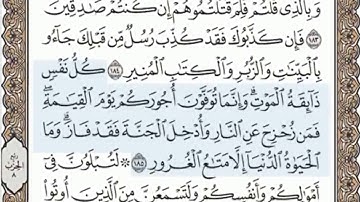 وَبِالَّذِي قُلْتُمْ فَلِمَ قَتَلْتُمُوهُمْ إِن كُنتُمْ صَٰدِقِينَ
١٨٣ فَإِن كَذَّبُوكَ فَقَدْ كُذِّبَ رُسُلٌ مِّن قَبْلِكَ جَآءُو
بِٱلْبَيِّنَٰتِ وَٱلزُّبُرِ وَٱلْكِتَٰبِ ٱلْمُنِيرِ ١٨٤ كُلُّ نَفْسٍ
ذَآئِقَةُ ٱلْمَوْتِ وَإِنَّمَا تُوَفَّوْنَ أُجُورَكُمْ يَوْمَ ٱلْقِيَٰمَةِ
فَمَن زُحْزِحَ عَنِ ٱلنَّارِ وَأُدْخِلَ ٱلْجَنَّةَ فَقَدْ فَازَ وَمَا
ٱلْحَيَوٰةُ ٱلدُّنْيَآ إِلَّا مَتَٰعُ ٱلْغُرُورِ ١٨٥ ۞ لَتُبْلَوُنَّ فِىٓ
أَمْوَٰلِكُمْ وَأَنفُسِكُمْ وَلَتَسْمَعُنَّ مِنَ ٱلَّذِينَ أُوتُوا۟